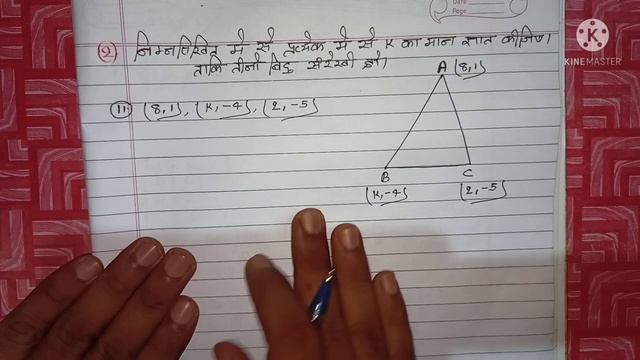 Date
Page
K
KINEMASTER
(2) निम्नलिखित मे से प्रत्येक मे से K का मान ज्ञात कीजिए।
ताकि तीनो बिंदु संरेखी हो।
A (8,1)
(ii) (8,1), (K,-4), (2,-5)
B C
(K,-4) (2,-5)